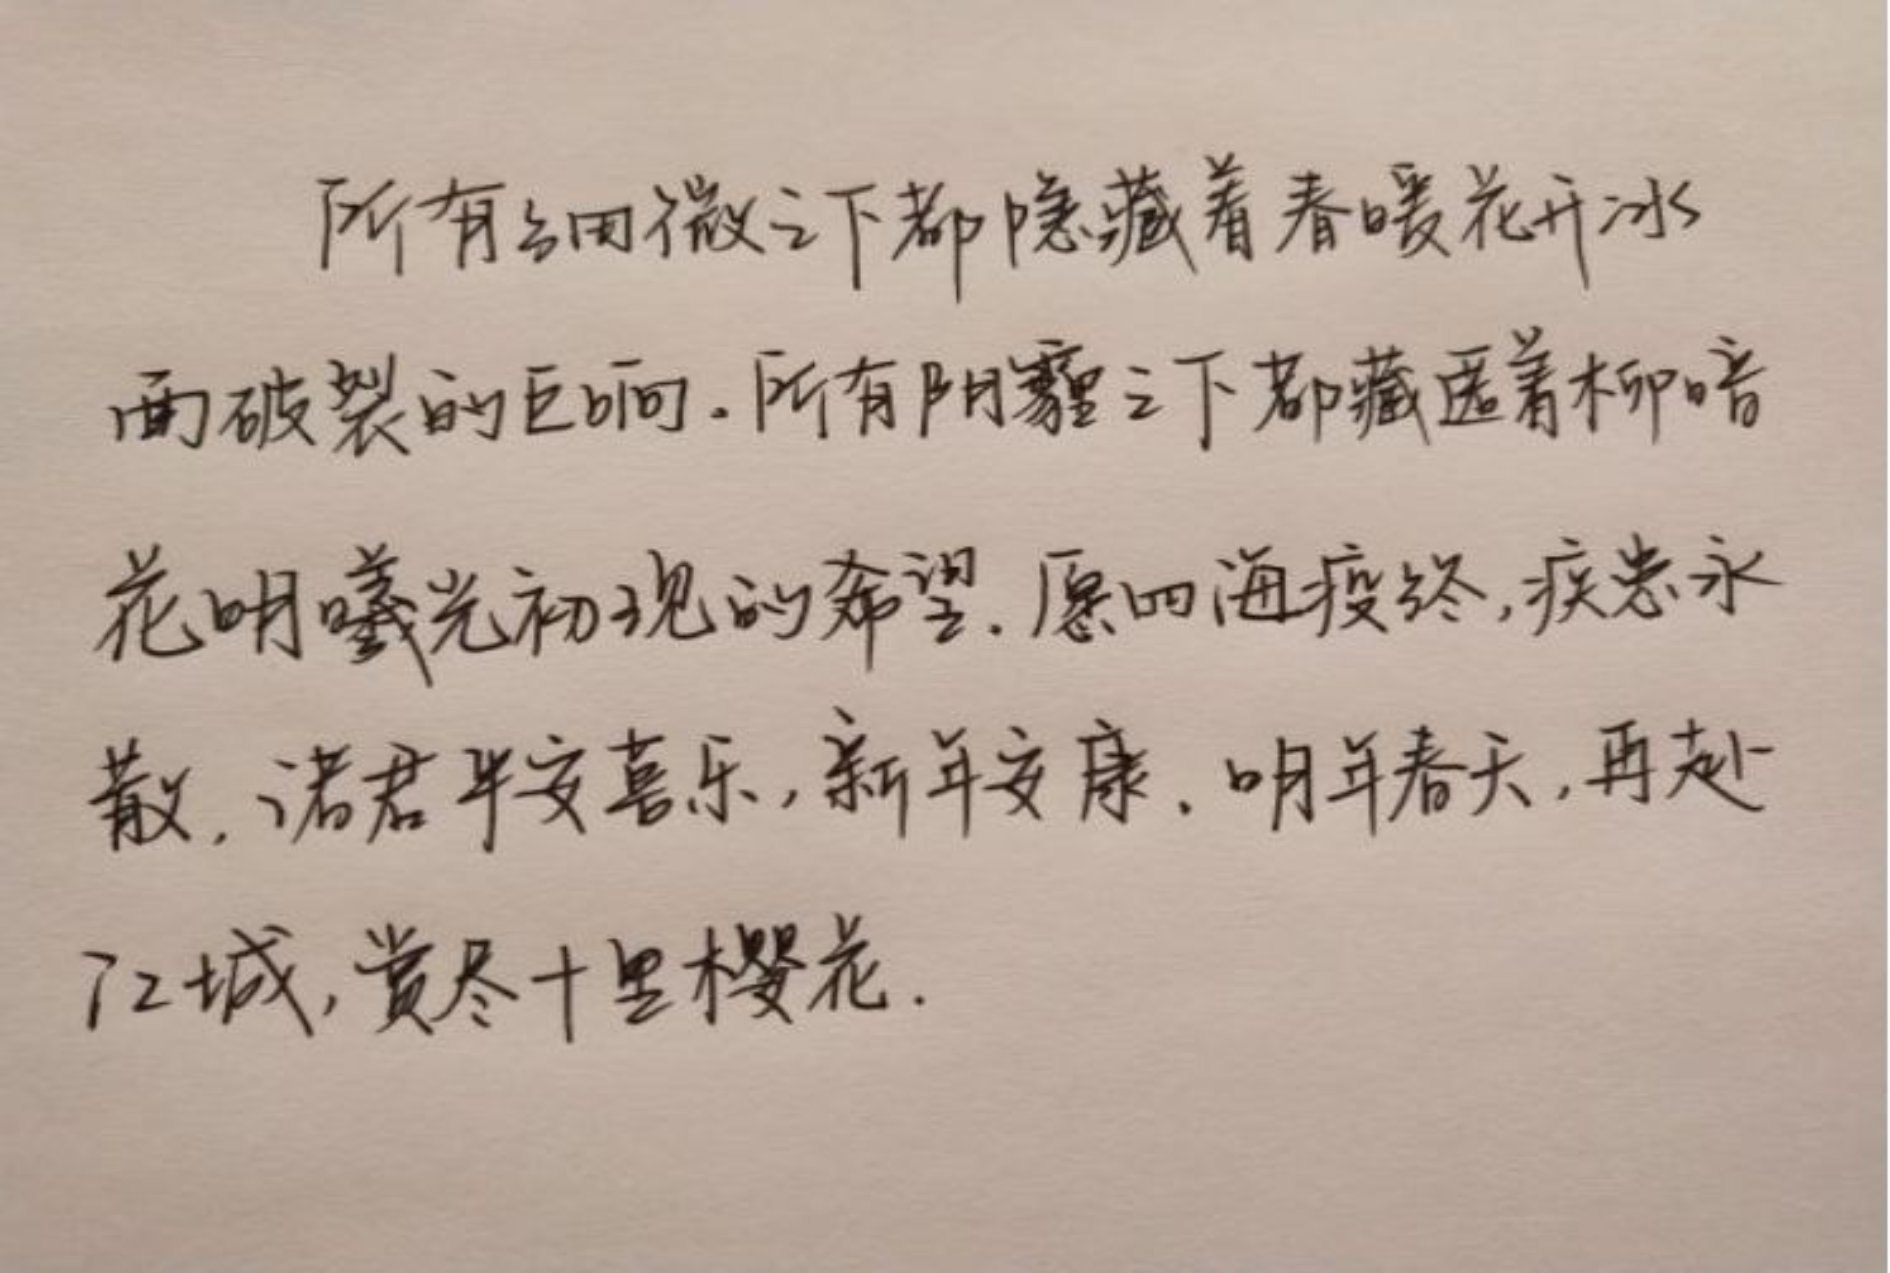 所有细微之下都隐藏着春暖花开冰
面破裂的巨响.所有阴霾之下都藏匿着柳暗
花明曦光初现的希望.愿四海疫终,疾患永
散.诸君平安喜乐,新年安康.明年春天,再赴
江城,赏尽十里樱花.